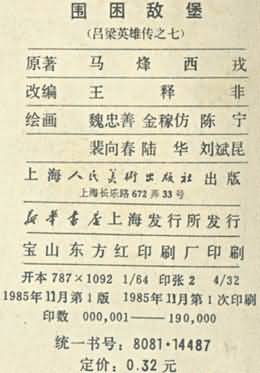 围困敌堡
(吕梁英雄传之七)
原著 马烽 西戎
改编 王释非
绘画 魏忠善 金稼仿 陈宁
裴向春 陆华 刘斌昆
上海人民美術出版社出版
上海长乐路672弄33号
新华書店上海发行所发行
宝山东方红印刷厂印刷
开本 787×1092 1/64 印张 2 4/32
1985年11月第1版 1985年11月第1次印刷
印数 000,001——190,000
统一书号: 8081·14487
定价: 0.32 元